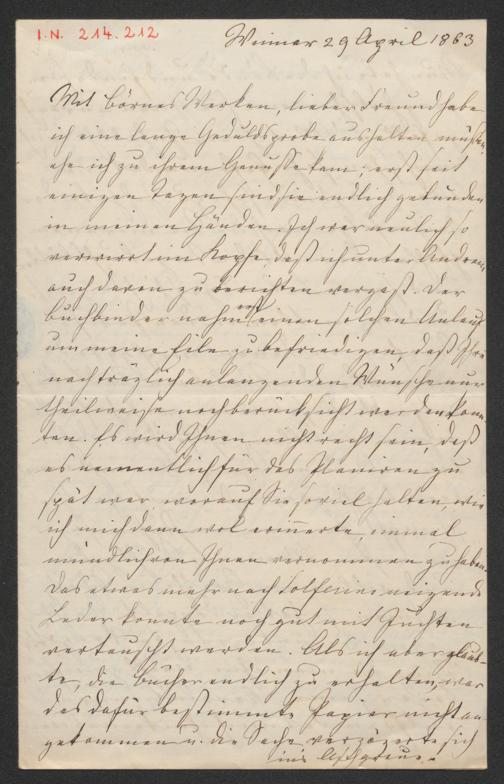 I.N. 214.212
Weimar 29 April 1863
Mit Börnes Werken, lieber Freund habe
ich eine lange Geduldsprobe aushalten müssen,
ehe ich zu ihrem Genusse kam; erst seit
einigen Tagen sind sie endlich gebunden
in meinen Händen. Ich war neulich so
verwirrt im Kopfe, daß ich unter Andrem
auch davon zu berichten vergaß. Der
Buchbinder nahm erst einen solchen Anlauf
um meine Eile zu befriedigen, daß Ihre
nachträglich anlangenden Wünsche nur
theilweise noch berücksicht werden konn
ten. Es wird Ihnen nicht recht sein, daß
es namentlich für das Planiren zu
spät war worauf Sie soviel halten, wie
ich mich dann wol erinnerte, einmal
mündlich von Ihnen vernommen zu haben.
Das etwas mehr nach Solferino neigende
Leder konnte noch gut mit Juchten
vertauscht werden. Als ich aber glaub-
te, die Bücher endlich zu erhalten, war
das dafür bestimmte Papier nicht an
gekommen u. die Sache verzögerte sich
ins